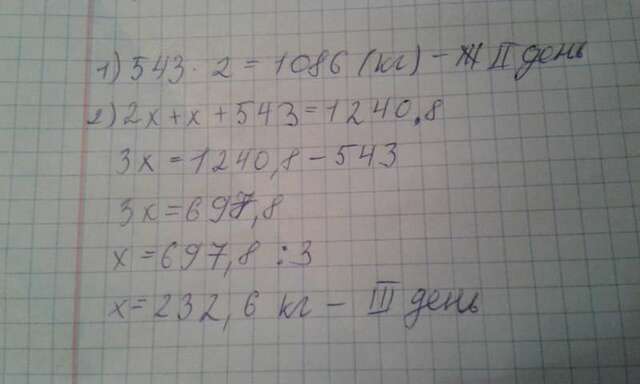 1) 543 · 2 = 1086 (кг) - II день
2) 2x + x + 543 = 1240,8
3x = 1240,8 - 543
3x = 697,8
x = 697,8 : 3
x = 232,6 кг - III день